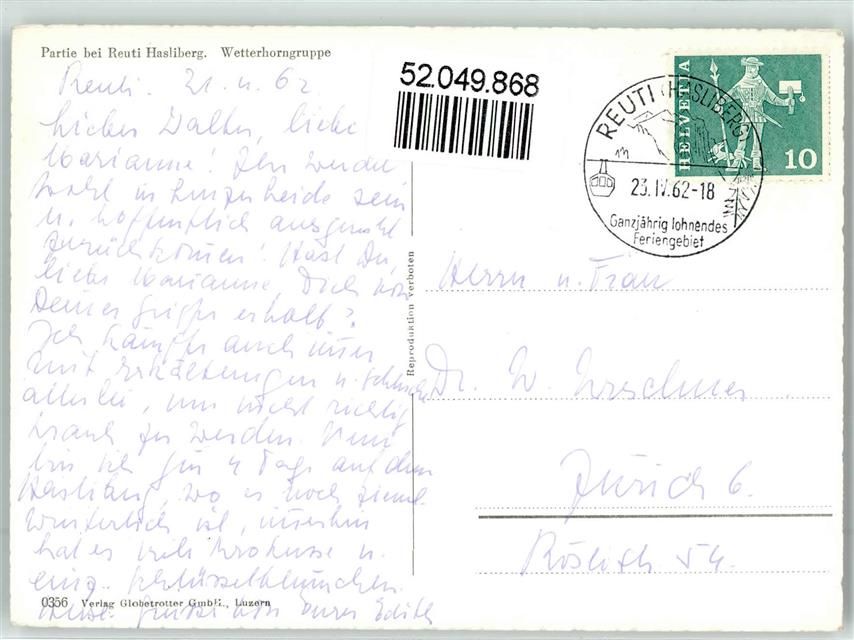 Partie bei Reuti Hasliberg. Wetterhorngruppe
52.049.868
HELVETIA
10
REUTI (HASLIBERG)
23.IV.62-18
Ganzjährig lohnendes
Feriengebiet
Reuti. 21. 4. 62
Lieber Walter, liebe
Marianne! Ihr werdet
wohl in Lenzerheide sein
u. hoffentlich ausgeruht
zurückkommen! Hast Du,
liebe Marianne, Dich von
Deiner Grippe erholt?
Ich kämpfe auch immer
mit Erkältungen u.
allerlei, um nicht richtig
krank zu werden. Nun
bin ich für 4 Tage auf dem
Hasliberg, wo es noch zieml.
winterlich ist, immerhin
hat es viele Krokusse u.
einige Schlüsselblümchen.
Grüsse von Eurer Edith
Reproduktion verboten
Herrn u. Frau
Dr. W.
Zürich 6.
Röslistr. 54.
0356 Verlag Globetrotter GmbH., Luzern